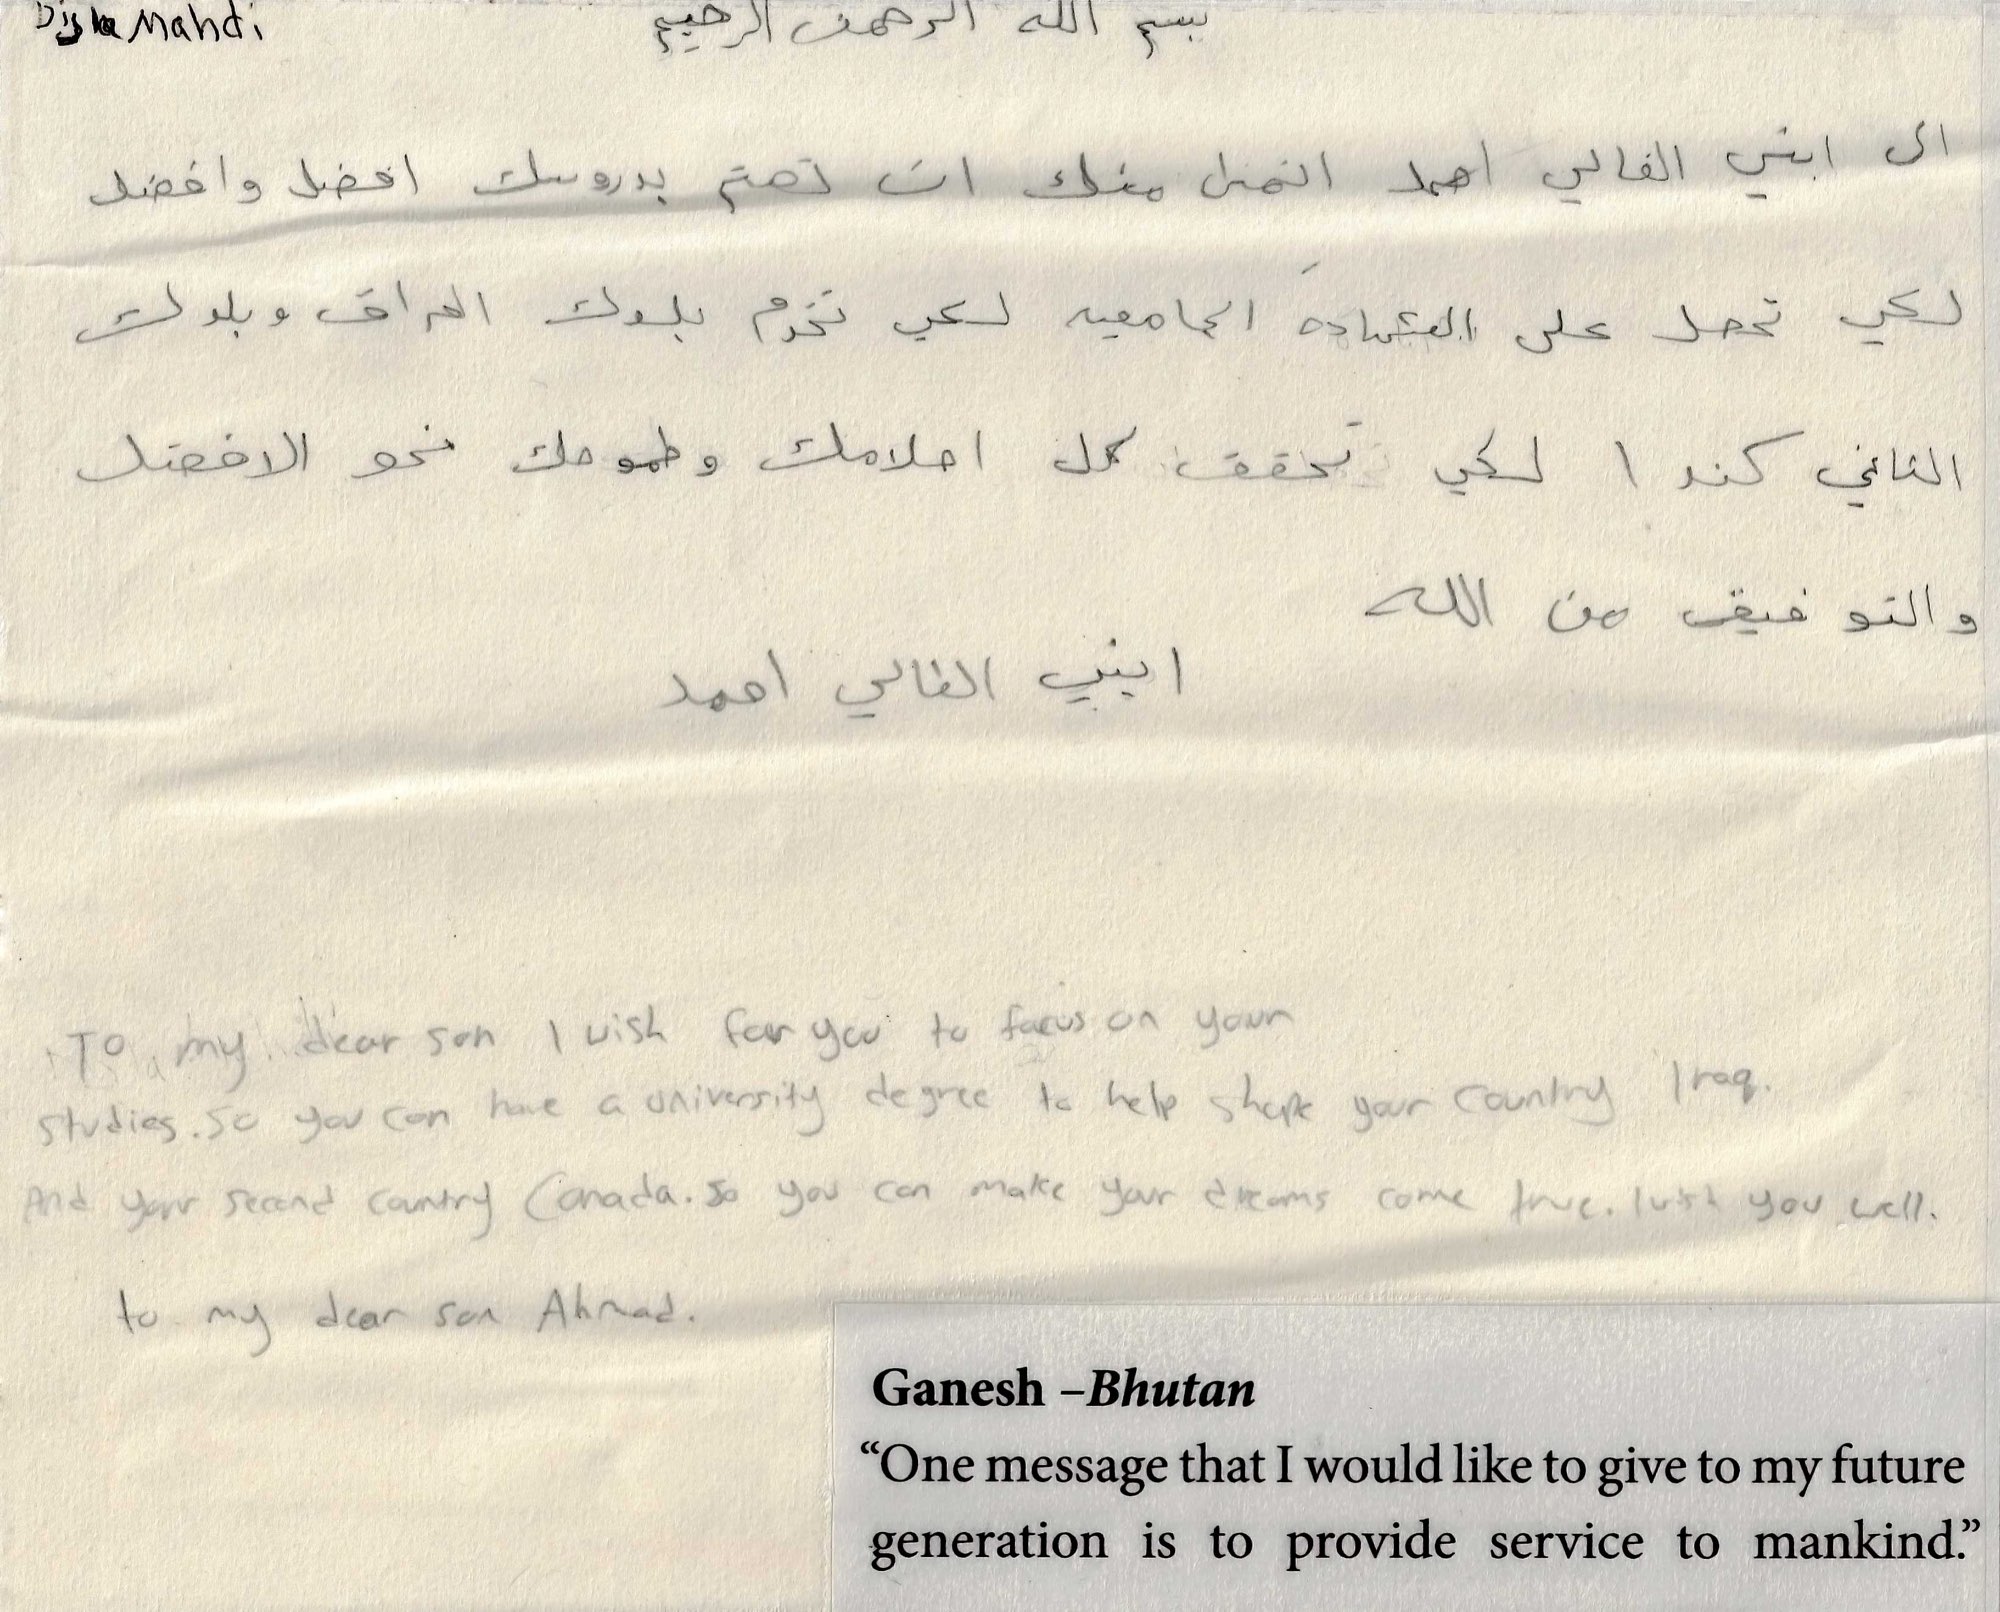 Mahdi
بسم الله الرحمن الرحيم
الى ابني الغالي احمد اتمنى منك ان تهتم بدروسك افضل وافضل
لكي تحصل على الشهادة الجامعيه لكي تخدم بلدك العراق وبلدك
الثاني كندا لكي تحقق كل احلامك وطموحك نحو الافضل
والتوفيق من الله
ابني الغالي احمد
To my dear son I wish for you to focus on your
studies. So you can have a university degree to help shape your country Iraq.
And your second country Canada. so you can make your dreams come true. I wish you well.
to my dear son Ahmad.
Ganesh –Bhutan
“One message that I would like to give to my future
generation is to provide service to mankind.”